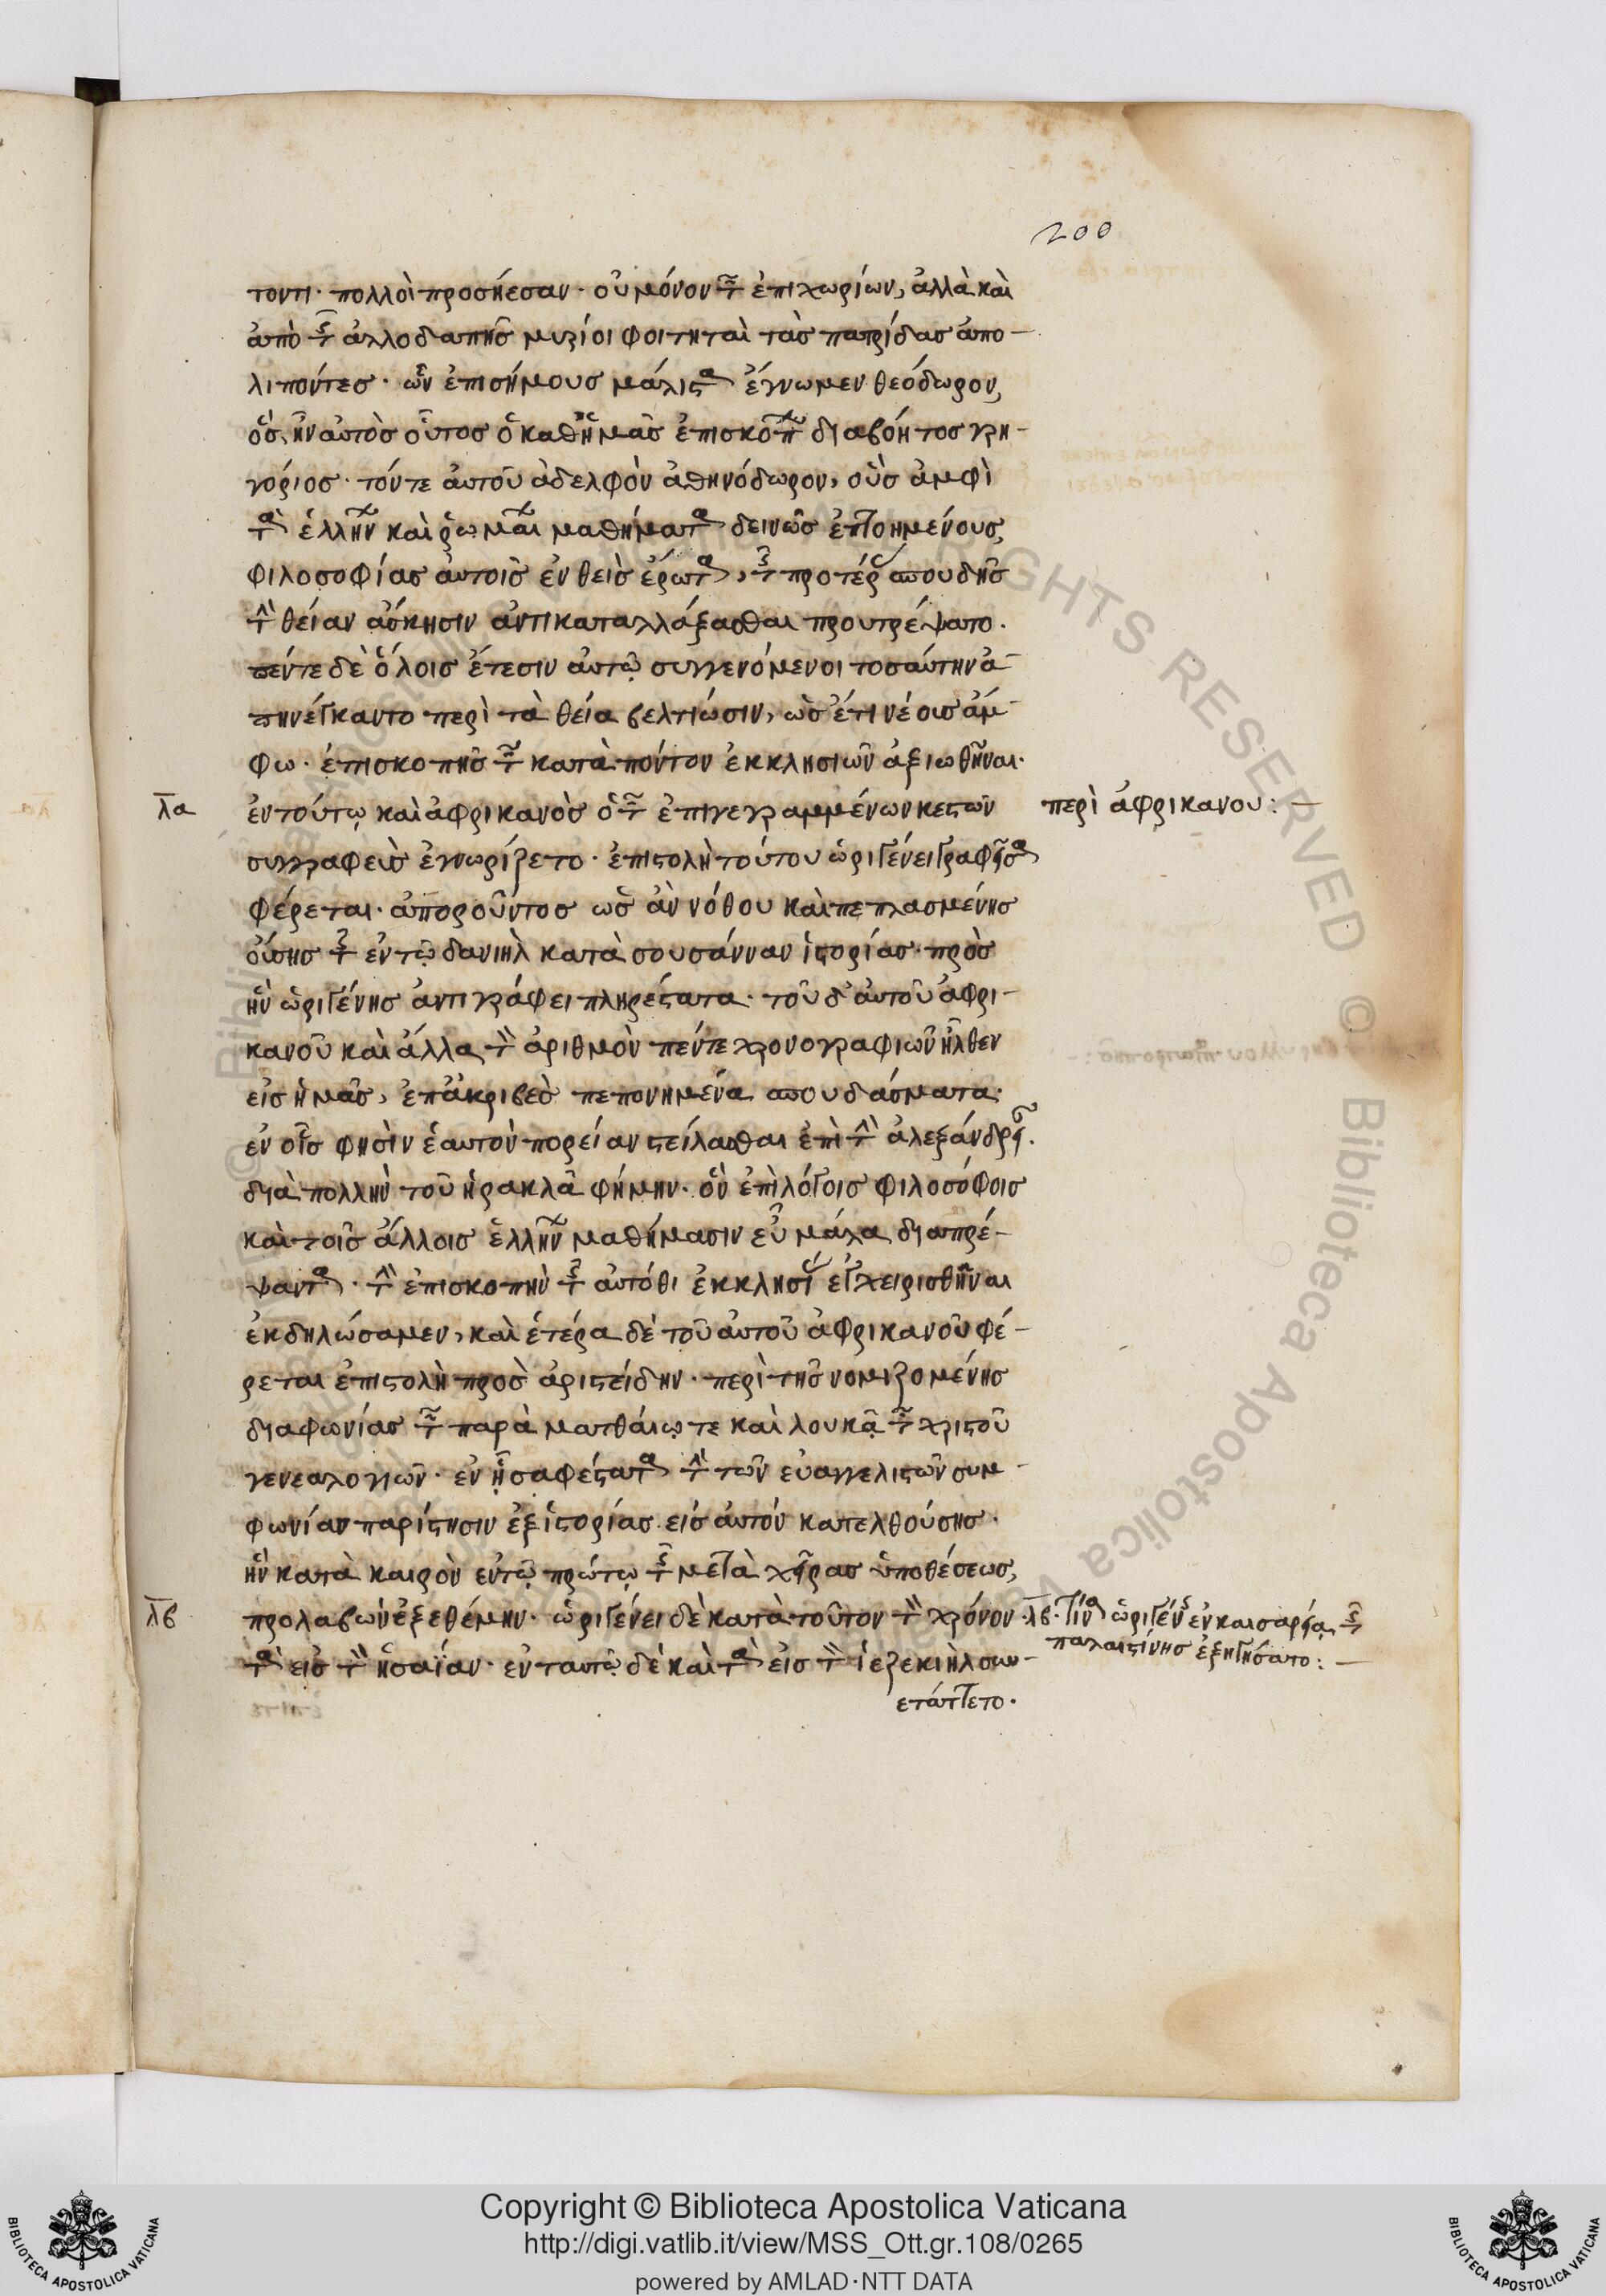 200
τοντι· πολλοὶ προσήεσαν· οὐ μόνον τῶν ἐπιχωρίων, ἀλλὰ καὶ
ἀπὸ τῆς ἀλλοδαπῆς μυρίοι φοιτηταὶ τὰς πατρίδας ἀπο-
λιπόντες· ὧν ἐπισήμους μάλιστα ἔγνωμεν θεόδωρον,
ὃς, ἦν αὐτὸς οὗτος ὁ καθ' ἡμᾶς ἐπισκόπων διαβόητος γρη-
γόριος· τόν τε αὐτοῦ ἀδελφὸν ἀθηνόδωρον, οὓς ἀμφὶ
τὰ ἑλλήνων καὶ ῥωμαίων μαθήματα δεινῶς ἐπτοημένους,
φιλοσοφίας αὐτοῖς ἐνθεὶς ἔρωτα, τῆς προτέρας σπουδῆς
τὴν θείαν ἄσκησιν ἀντικαταλλάξασθαι προυτρέψατο.
πέντε δὲ ὅλοις ἔτεσιν αὐτῷ συγγενόμενοι τοσαύτην ἀ-
πηνέγκαντο περὶ τὰ θεία βελτιώσιν, ὡς ἔτι νέους ἄμ-
φω· ἐπισκοπῆς τῶν κατὰ πόντον ἐκκλησιῶν ἀξιωθῆναι·
λα ἐν τούτῳ καὶ ἀφρικανὸς ὁ τῶν ἐπιγεγραμμένων κεστῶν περὶ ἀφρικανου: —
συγγραφεὺς ἐγνωρίζετο· ἐπιστολὴ τούτου ὠριγένει γραφεῖσα
φέρεται· ἀποροῦντος ὡς ἂν νόθου καὶ πεπλασμένης
οὔσης τῆς ἐν τῷ δανιὴλ κατὰ σουσάνναν ἱστορίας· πρὸς
ἣν ὠριγένης ἀντιγράφει πληρέστατα· τοῦ δ' αὐτοῦ ἀφρι-
κανοῦ καὶ ἄλλα τὸν ἀριθμὸν πέντε χρονογραφιῶν ἦλθεν
εἰς ἡμᾶς, ἐπ' ἀκριβὲς πεπονημένα σπουδάσματα·
ἐν οἷς φησὶν ἑαυτὸν πορείαν στείλασθαι ἐπὶ τὴν ἀλεξάνδρειαν.
διὰ πολλὴν τοῦ ἡρακλᾶ φήμην· ὃν ἐπὶ λόγοις φιλοσόφοις
καὶ τοῖς ἄλλοις ἑλλήνων μαθήμασιν εὖ μάλα διαπρέ-
ψαντα· τὴν ἐπισκοπὴν τῆς αὐτόθι ἐκκλησίας ἐγχειρισθῆναι
ἐκδηλώσαμεν, καὶ ἑτέρα δὲ τοῦ αὐτοῦ ἀφρικανοῦ φέ-
ρεται ἐπιστολὴ πρὸς ἀριστείδην· περὶ τῆς νομιζομένης
διαφωνίας τῶν παρὰ ματθαίῳ τε καὶ λουκᾷ τῶν χριστοῦ
γενεαλογιῶν· ἐν ᾗ σαφέστατα τὴν τῶν εὐαγγελιστῶν συμ-
φωνίαν παρίστησιν ἐξ ἱστορίας εἰς αὐτόν κατελθούσης·
ἣν κατὰ καιρὸν ἐν τῷ πρώτῳ τῆς μετὰ χεῖρας ὑποθέσεως,
λβ προλαβὼν ἐξεθέμην· ὠριγένει δὲ κατὰ τοῦτον τὸν χρόνον· λβ· τίνα ὠριγένης ἐν καισαρείᾳ τῆς
τὰ εἰς τὸν ἡσαΐαν· ἐν ταυτῷ δὲ καὶ τὰ εἰς τὸν ἱεζεκιὴλ συν- παλαιστίνης ἐξηγήσατο: —
ετάττετο·
© Biblioteca Apostolica Vaticana
ALL RIGHTS RESERVED
Copyright © Biblioteca Apostolica Vaticana
http://digi.vatlib.it/view/MSS_Ott.gr.108/0265
powered by AMLAD·NTT DATA
BIBLIOTECA APOSTOLICA VATICANA
BIBLIOTECA APOSTOLICA VATICANA